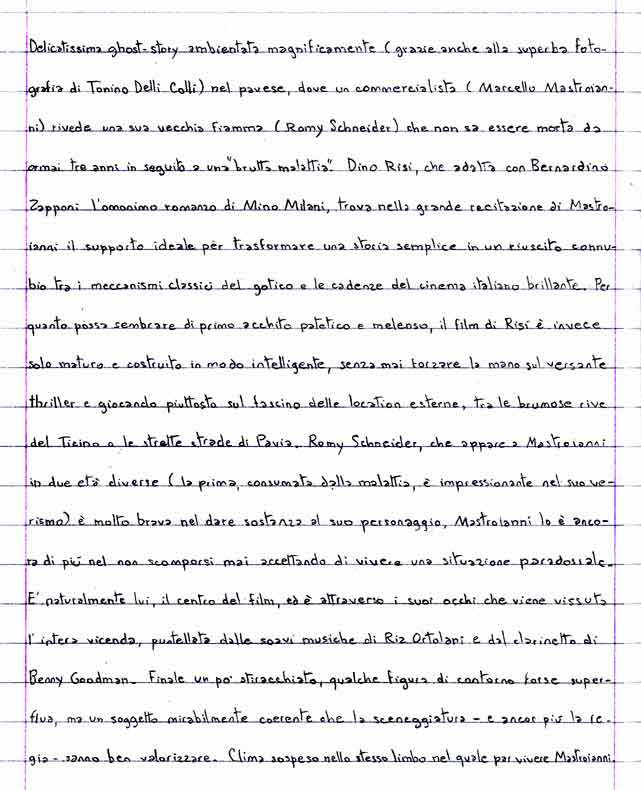 Delicatissima ghost-story ambientata magnificamente (grazie anche alla superba foto-
grafia di Tonino Delli Colli) nel pavese, dove un commercialista (Marcello Mastroian-
ni) rivede una sua vecchia fiamma (Romy Schneider) che non sa essere morta da
ormai tre anni in seguito a una "brutta malattia". Dino Risi, che adatta con Bernardino
Zapponi l'omonimo romanzo di Mino Milani, trova nella grande recitazione di Mastro-
ianni il supporto ideale per trasformare una storia semplice in un riuscito connu-
bio tra i meccanismi classici del gotico e le cadenze del cinema italiano brillante. Per
quanto possa sembrare di primo acchito patetico e melenso, il film di Risi è invece
solo maturo e costruito in modo intelligente, senza mai forzare la mano sul versante
thriller e giocando piuttosto sul fascino delle location esterne, tra le brumose rive
del Ticino o le strette strade di Pavia. Romy Schneider, che appare a Mastroianni
in due età diverse (la prima, consumata dalla malattia, è impressionante nel suo ve-
rismo) è molto brava nel dare sostanza al suo personaggio, Mastroianni lo è anco-
ra di più nel non scomporsi mai accettando di vivere una situazione paradossale.
E' naturalmente lui, il centro del film, ed è attraverso i suoi occhi che viene vissuta
l'intera vicenda, puntellata dalle soavi musiche di Riz Ortolani e dal clarinetto di
Benny Goodman. Finale un po' stiracchiato, qualche figura di contorno forse super-
flua, ma un soggetto mirabilmente coerente che la sceneggiatura - e ancor più la re-
gia - sanno ben valorizzare. Clima sospeso nello stesso limbo nel quale par vivere Mastroianni.